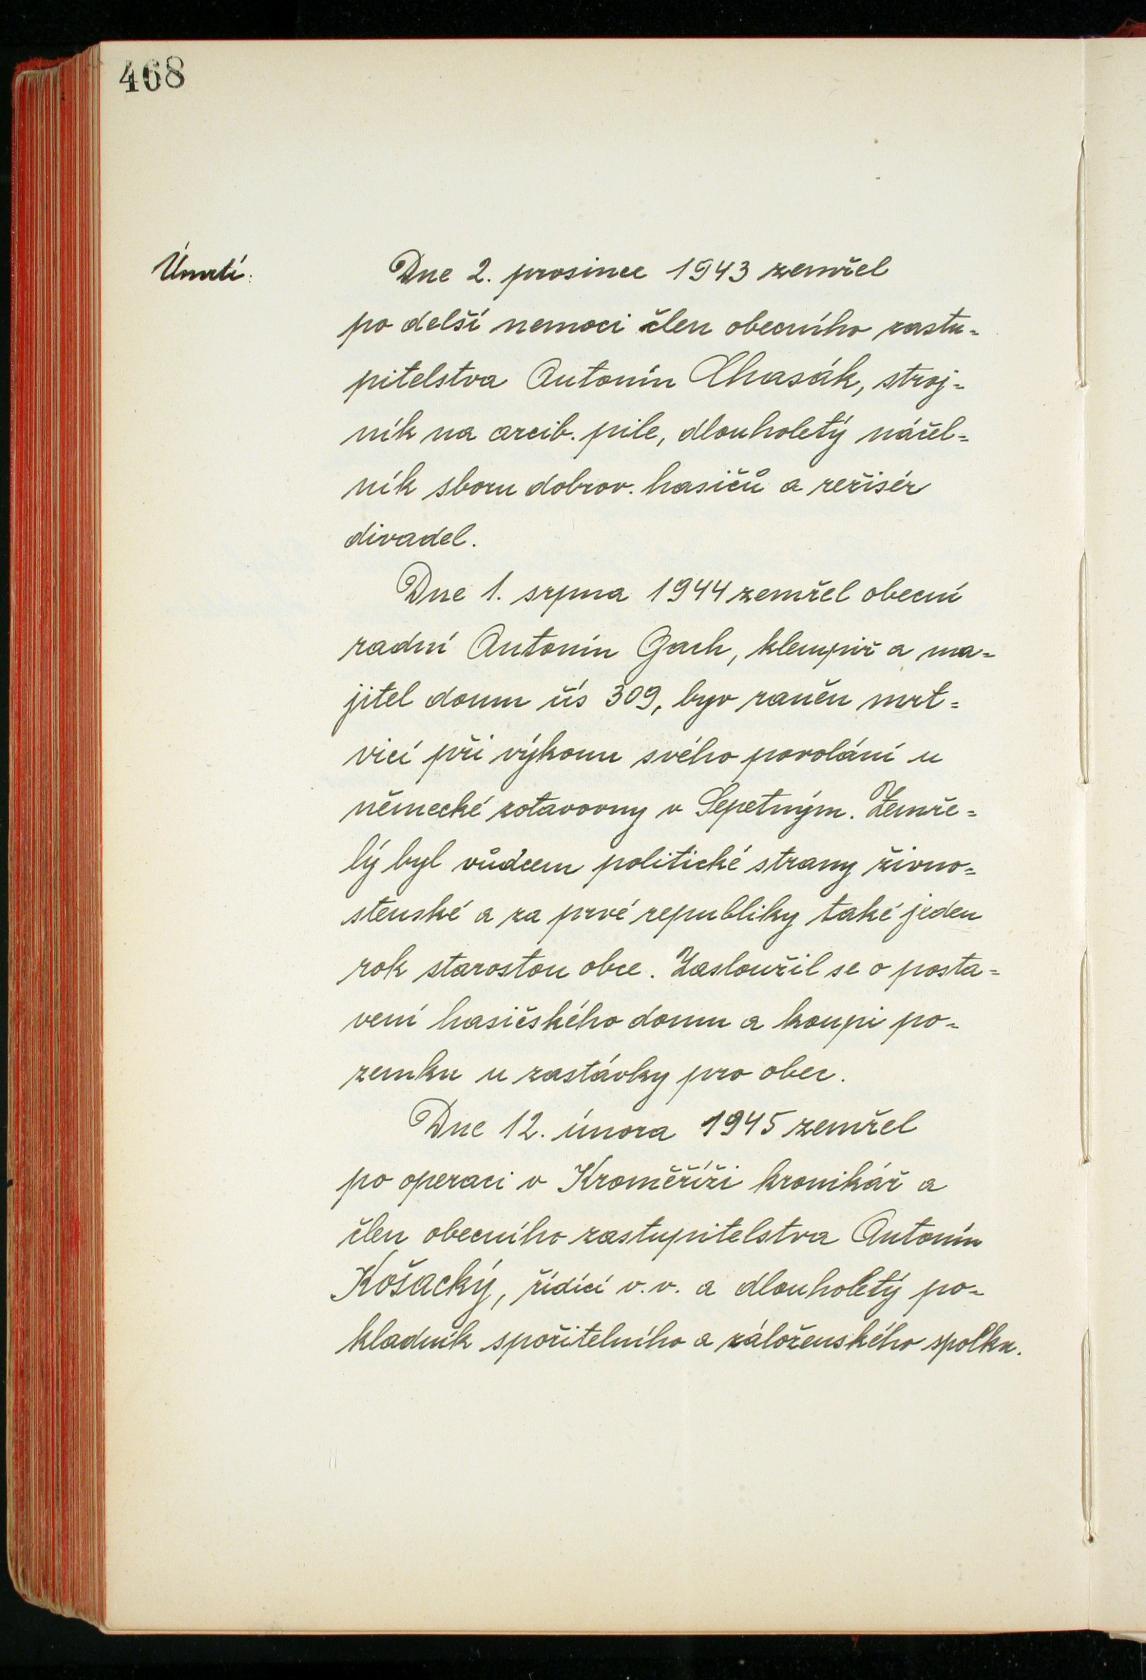 468
Úmrtí.
Dne 2. prosince 1943 zemřel
po delší nemoci člen obecního zastu-
pitelstva Antonín Chasák, stroj-
ník na arcib. pile, dlouholetý náčel-
ník sboru dobrov. hasičů a režisér
divadel.
Dne 1. srpna 1944 zemřel obecní
radní Antonín Gach, klempíř a ma-
jitel domu čís 309, byv raněn mrt-
vicí při výkonu svého povolání u
německé zotavovny v Sepetným. Zemře-
lý byl vůdcem politické strany živno-
stenské a za prvé republiky také jeden
rok starostou obce. Zasloužil se o posta-
vení hasičského domu a koupi po-
zemku u zastávky pro obec.
Dne 12. února 1945 zemřel
po operaci v Kroměříži kronikář a
člen obecního zastupitelstva Antonín
Košacký, řídící v.v. a dlouholetý po-
kladník spořitelního a záloženského spolku.